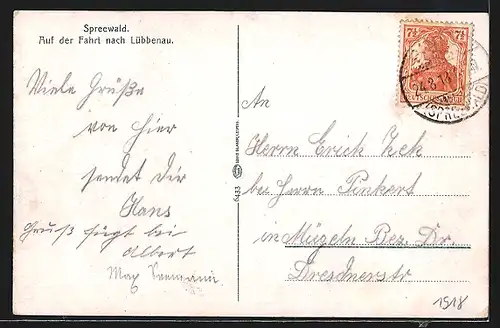 Spreewald.
Auf der Fahrt nach Lübbenau.
7½ 7½
24.8.1
(SPREEWALD)
Viele Grüße
von hier
sendet Dir
Hans
Gruß fügt bei
Albert
Max
An
Herrn Erich Zek
bei Herrn Pinkert
in Mügeln Bez. Dr.
Dresdnerstr
6433
1518